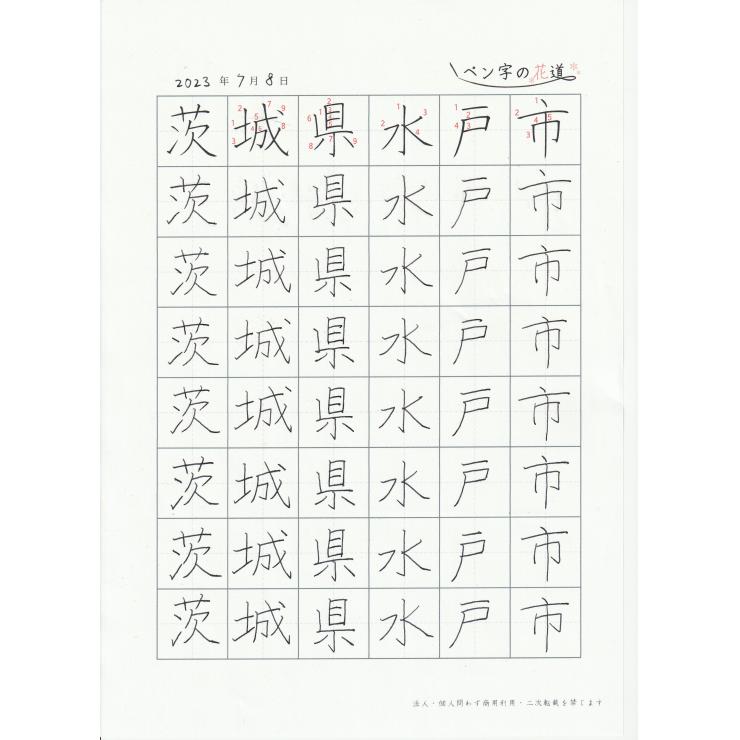 2023年7月8日
ペン字の花道
茨城県水戸市
茨城県水戸市
茨城県水戸市
茨城県水戸市
茨城県水戸市
茨城県水戸市
茨城県水戸市
茨城県水戸市
法人・個人問わず商用利用・二次転載を禁じます